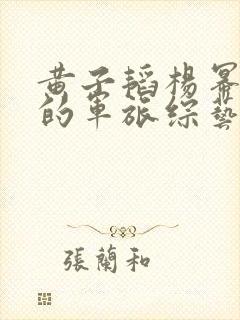 黄子韬杨幂
的军旅综艺
張蘭和